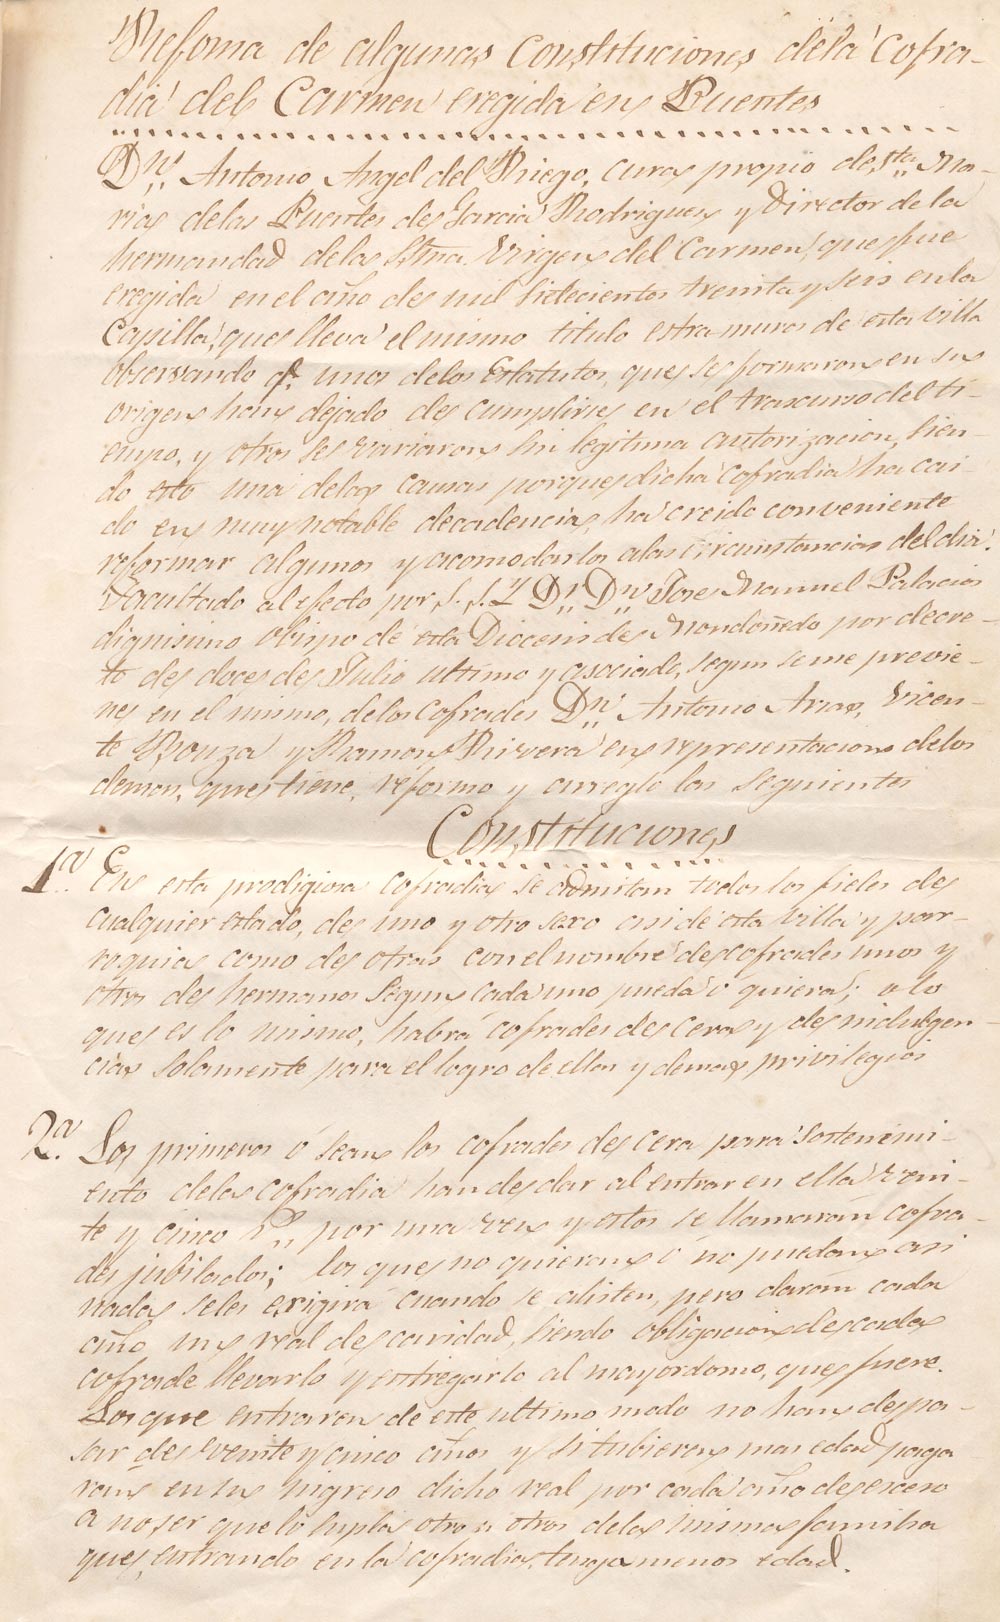 Refoma de algunas Constituciones de la Cofra-
dia del Carmen eregida en Puentes
Dn. Antonio Angel del Riego, cura propio de Sta. Ma-
ria de las Puentes de Garcia Rodriguez y Director de la
hermandad de la Stma. Virgen del Carmen, que fue
eregida en el año de mil sietecientos treinta y seis en la
Capilla, que lleva el mismo titulo estramuros de esta villa
observando qe. unos de los Estatutos, que se formaron en su
origen han dejado de cumplirse en el trascurso del ti-
empo, y otros se variaron sin legitima autorizacion, sien-
do esto una de las causas porque dicha cofradia ha cai-
do en muy notable decadencia, ha creido conveniente
reformar algunos y acomodarlos a las circunstancias del dia.
Facultado al efecto por S. S. Y. Dr. Dn. Jose Manuel Palacios
dignisimo Obispo de esta Diocesis de Mondoñedo por decre-
to de doce de Julio ultimo y asociado, segun se me previe-
ne en el mismo, de los cofrades Dn. Antonio Arias, Vicen-
te Bouza y Ramon Rivera en representacion de los
demas, que tiene, reformo y arreglo las seguientes
Constituciones
1.a En esta prodigiosa cofradia se admitan todos los fieles de
cualquier estado, de uno y otro sexo asi de esta villa y par-
roquia como de otras con el nombre de cofrades unos y
otros de hermanos segun cada uno pueda o quiera; o lo
que es lo mismo, habra cofrades de cera y de indulgen-
cias solamente para el logro de ellas y demas privilegios
2.a Los primeros ó sean los cofrades de cera para sostenimi-
ento de la cofradia han de dar al entrar en ella vein-
te y cinco rs. por una vez y estos se llamaran cofra-
des jubilados; los que no quieran o no puedan asi
nada se les exigira cuando se alisten, pero daran cada
año un real de caridad, siendo obligacion de cada
cofrade llevarlo y entregarlo al mayordomo, que fuere.
Los que entraren de este ultimo modo no han de pa-
sar de veinte y cinco años y si tubieren mas edad paga
ran en su ingreso dicho real por cada año de esceso
a no ser que lo supla otro u otros de la misma familia
que, entrando en la cofradia, tenga menos edad.